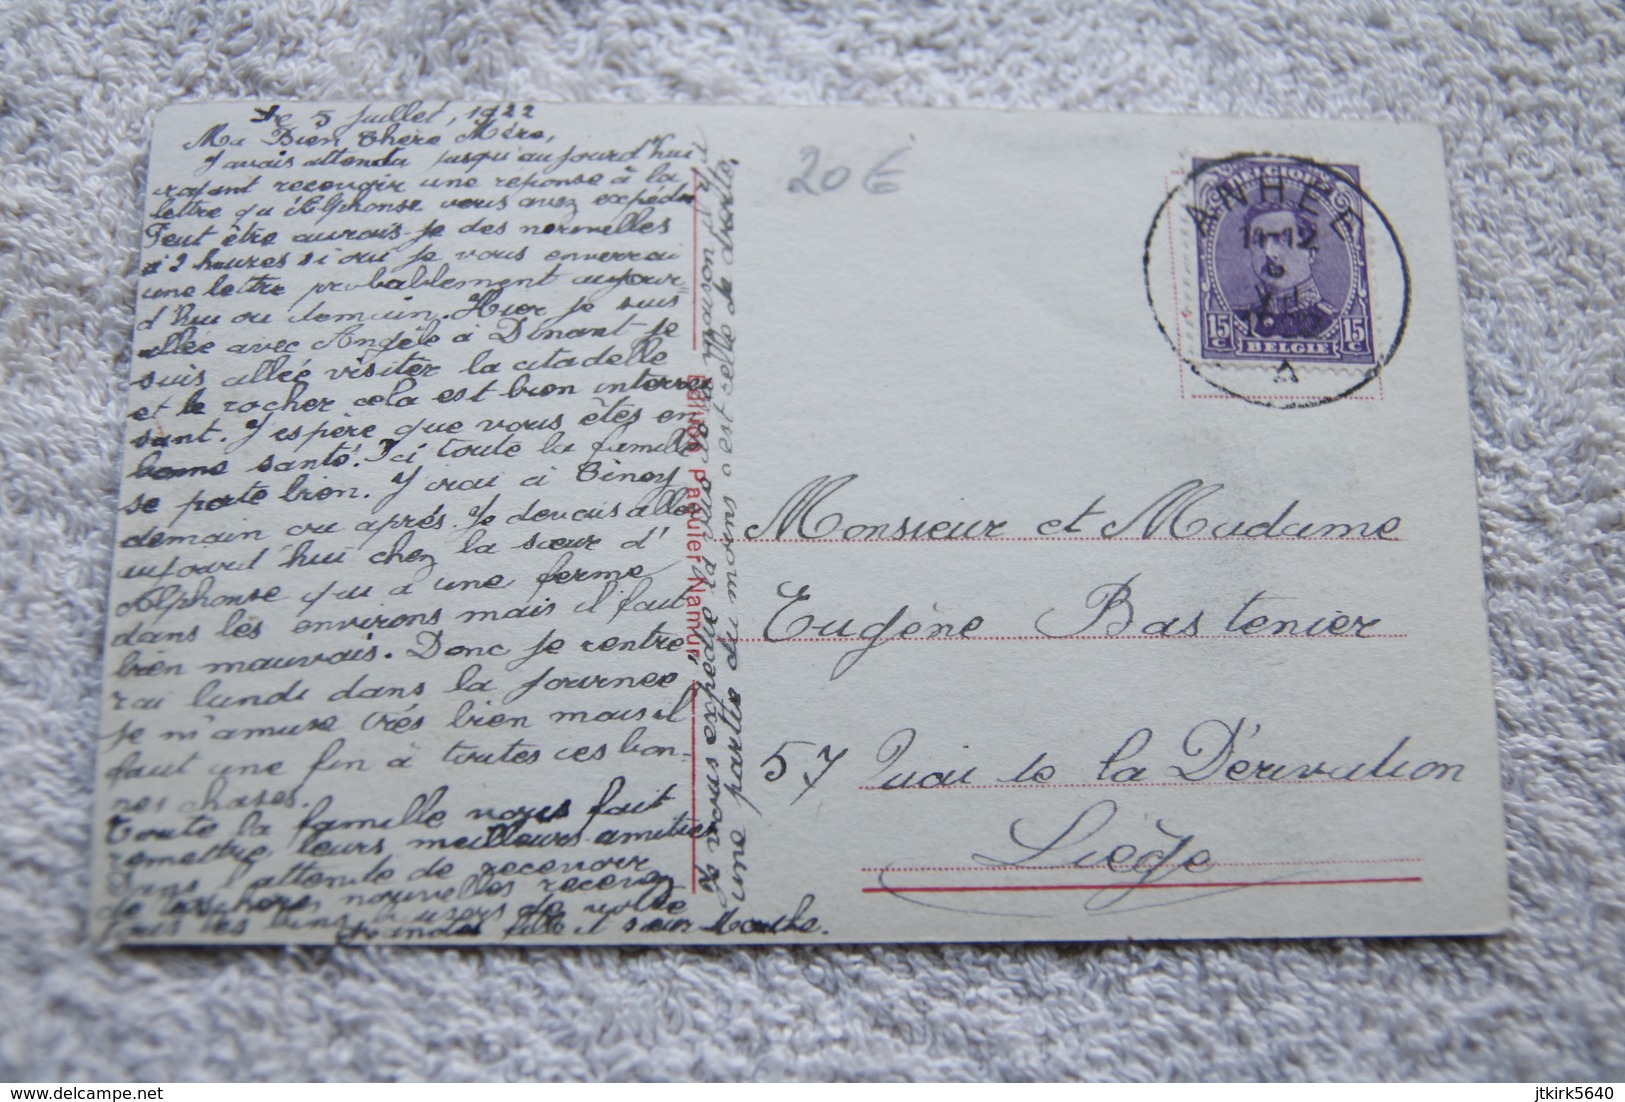 Le 5 Juillet, 1922
Ma Bien Chère Mère,
J'avais attendu jusqu'aujourd'hui
croyant recevoir une reponse à la
lettre qu'Alphonse vous avez expédié
Peut être aurais-je des nouvelles
à 2 heures si oui je vous enverrai
une lettre probablement aujour
d'hui ou demain. Hier je suis
allée avec Angèle à Dinant je
suis allée visiter la citadelle
et le rocher cela est bien interres
sant. J'espère que vous êtes en
bonne santé. Ici toute la famille
se porte bien. J'irai à Ciney
demain ou après. Je devais aller
aujourd'hui chez la sœur d'
Alphonse qui a une ferme
dans les environs mais il fait
bien mauvais. Donc je rentre
rai lundi dans la journee
je m'amuse très bien mais il
faut une fin à toutes ces bon-
nes choses.
Toute la famille vous fait
remettre leurs meilleurs amitiés
Dans l'attente de recevoir
de vos chères nouvelles recevez
tous les bons baisers de votre
grande fille et sœur Marthe.
Je vous expédie la vue de la maison
une partie du moins c'est celle de droite.
Edition Paquier Namur
20€
ANHEE
11-12
BELGIE
15 c
15 c
Monsieur et Madame
Eugène Bastenier
57 Quai de la Dérivation
Liège
delcampe.net
jtkirk5640